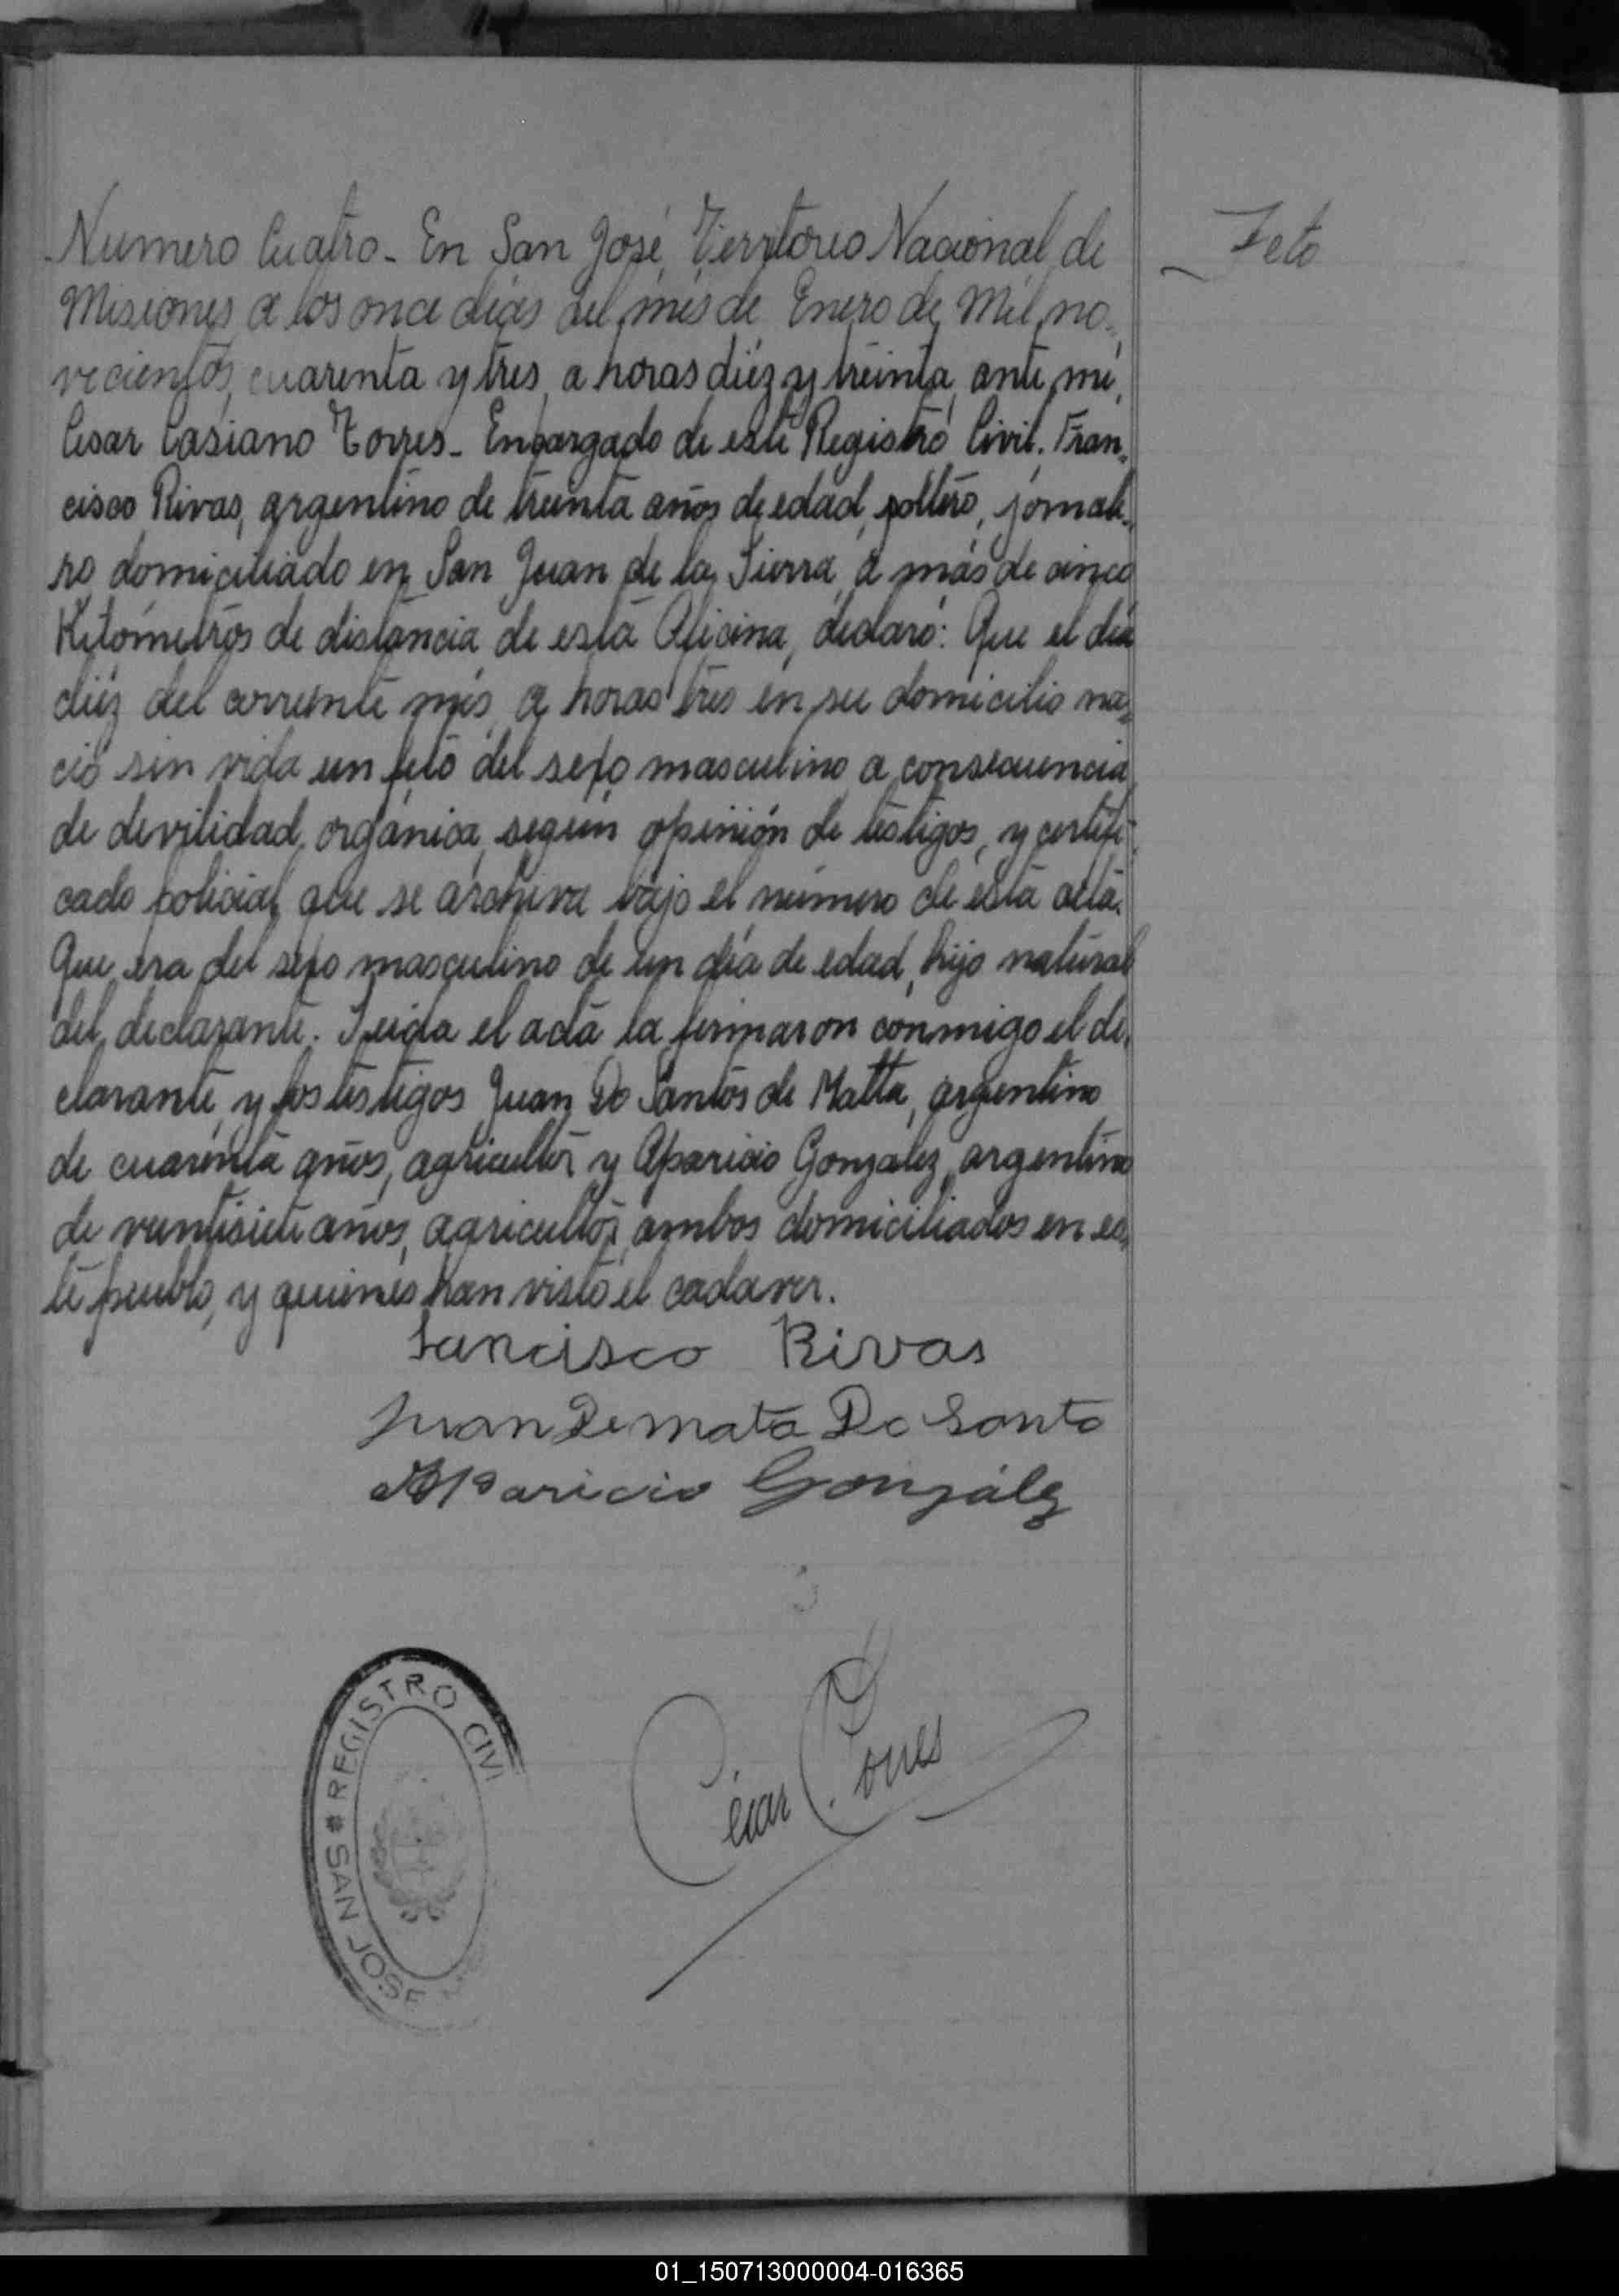 Numero Cuatro - En San José, Territorio Nacional de
Feto
Misiones a los once días del més de Enero de Mil no-
vecientos cuarenta y tres, a horas diéz y treinta, ante mi,
Cesar Casiano Torres - Encargado de este Registro Civil. Fran-
cisco Rivas, argentino de treinta años de edad, soltero, jornale-
ro domiciliado en San Juan de la Sierra, a más de cinco
Kilómetros de distáncia de esta Oficina, declaró: Que el día
diéz del corriente més, a horas tres en su domicilio na-
ció sin vida un feto del sexo masculino a consecuencia
de devilidad orgánica, según opinión de testigos, y certifi-
cado policial que se archiva bajo el número de esta acta.
Que era del sexo masculino de un día de edad, hijo natural
del declarante. Leida el acta la firmaron conmigo el de-
clarante, y los testigos Juan Do Santos de Matta, argentino
de cuarenta años, agricultor y Aparicio Gonzalez, argentino
de ventisiete años, agricultor, ambos domiciliados en es-
te pueblo, y quienes han visto el cadaver.
Francisco Rivas
Juan De mata Do Santo
Aparicio Gonzálz
REGISTRO CIVI
SAN JOSE
César C. Torres
01_150713000004-016365